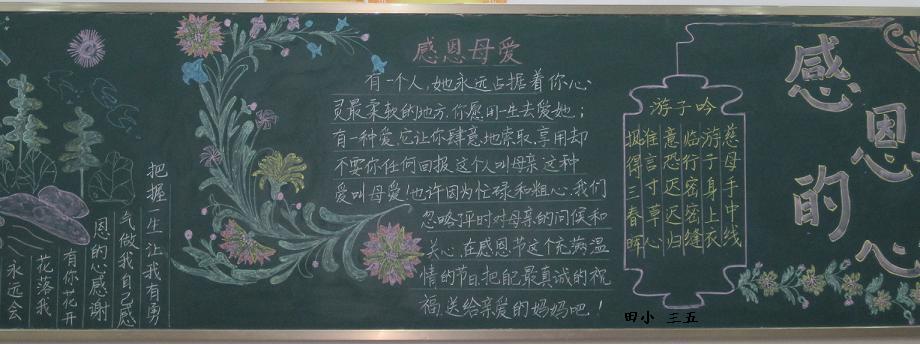 感恩母爱
有一个人,她永远占据着你心
灵最柔软的地方,你愿用一生去爱她;
有一种爱,它让你肆意地索取,享用却
不要你任何回报,这个人叫母亲,这种
爱叫母爱!也许因为忙碌和粗心,我们
忽略了平时对母亲的问候和
关心,在感恩节这个充满温
情的节日,把最真诚的祝
福,送给亲爱的妈妈吧!
游子吟
慈母手中线
游子身上衣
临行密密缝
意恐迟迟归
谁言寸草心
报得三春晖
感恩的心
把握一生让我有勇
气做我自己感
恩的心感谢
有你花开
花落我
永远会
田小 三五